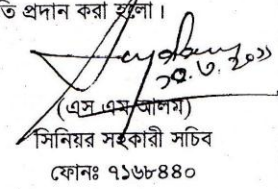 তি প্রদান করা হলো।
(এস এম আলম)
সিনিয়র সহকারী সচিব
ফোনঃ ৭১৬৮৪৪০